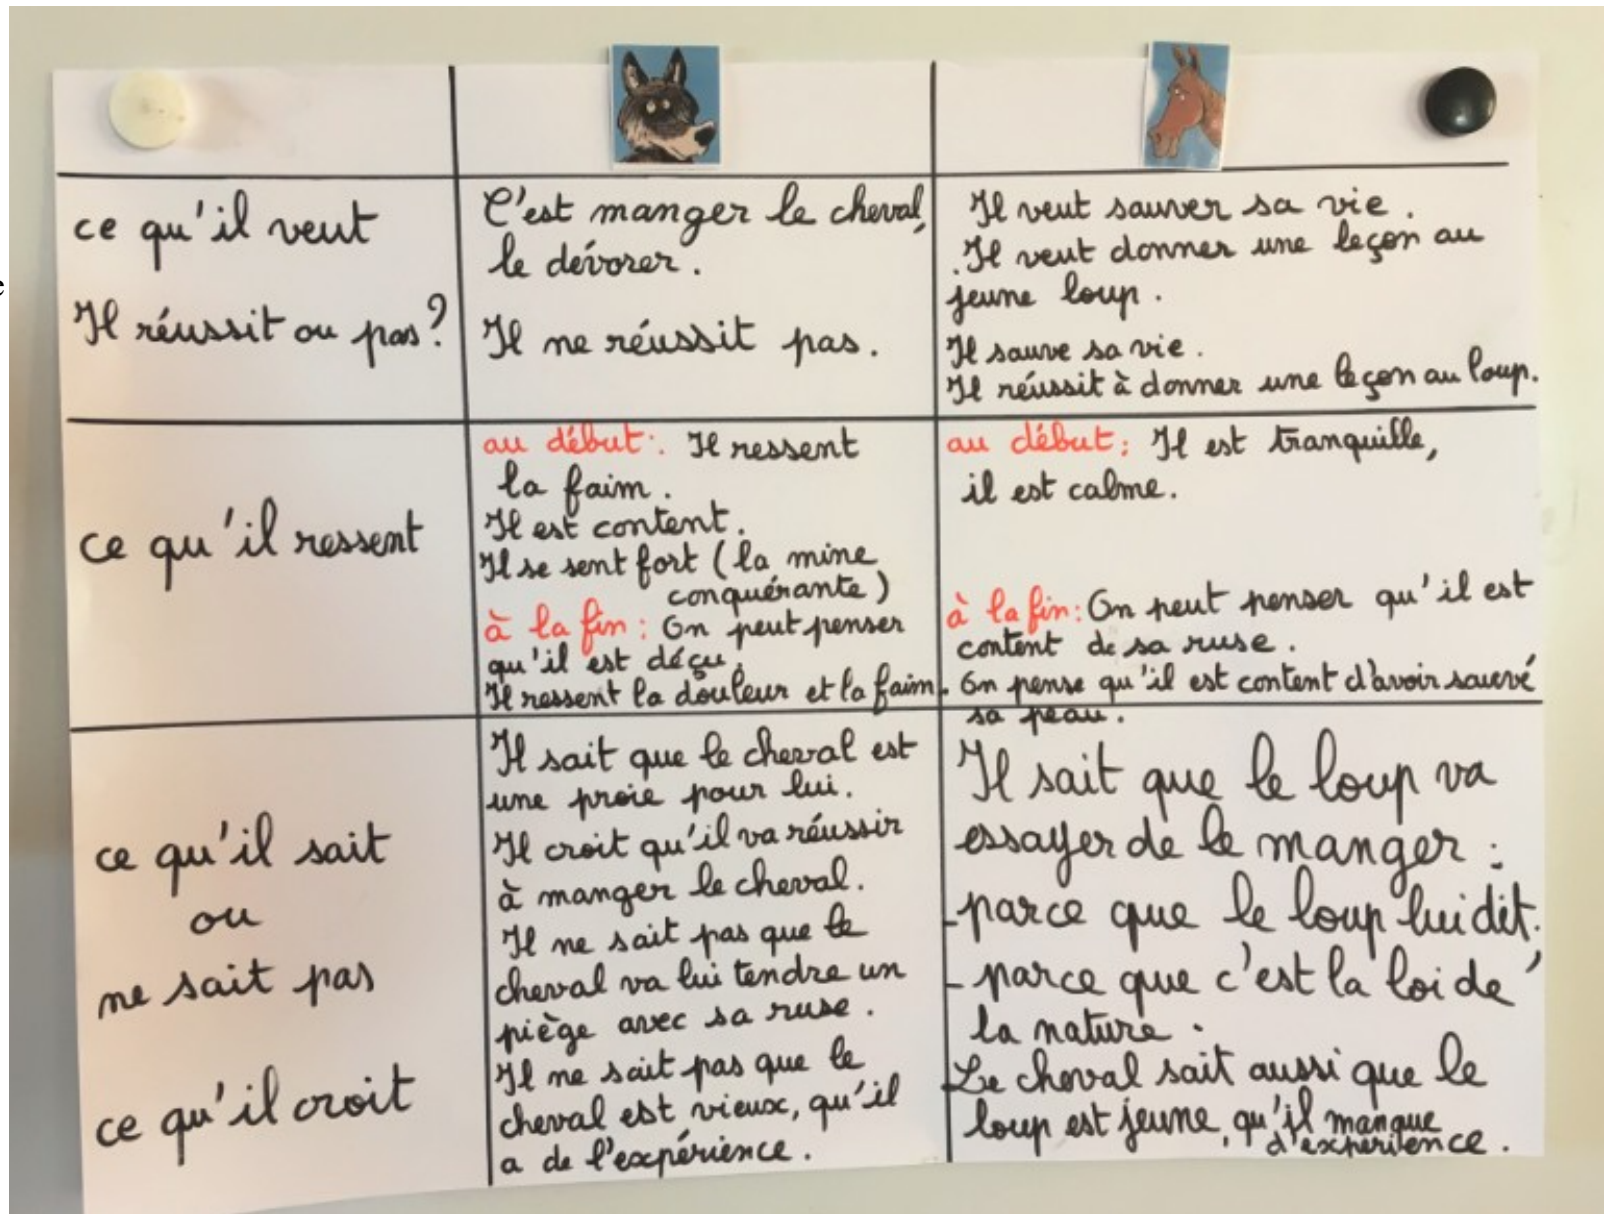 ce qu'il veut
Il réussit ou pas?
C'est manger le cheval,
le dévorer.
Il ne réussit pas.
Il veut sauver sa vie.
.Il veut donner une leçon au
jeune loup.
Il sauve sa vie.
Il réussit à donner une leçon au loup.
ce qu'il ressent
au début: Il ressent
la faim.
Il est content.
Il se sent fort (la mine
conquérante)
à la fin: On peut penser
qu'il est déçu.
Il ressent la douleur et la faim.
au début: Il est tranquille,
il est calme.
à la fin: On peut penser qu'il est
content de sa ruse.
On pense qu'il est content d'avoir sauvé
sa peau.
ce qu'il sait
ou
ne sait pas
ce qu'il croit
Il sait que le cheval est
une proie pour lui.
Il croit qu'il va réussir
à manger le cheval.
Il ne sait pas que le
cheval va lui tendre un
piège avec sa ruse.
Il ne sait pas que le
cheval est vieux, qu'il
a de l'expérience.
Il sait que le loup va
essayer de le manger:
-parce que le loup lui dit.
-parce que c'est la loi de
la nature.
Le cheval sait aussi que le
loup est jeune, qu'il manque
d'expérience.
e